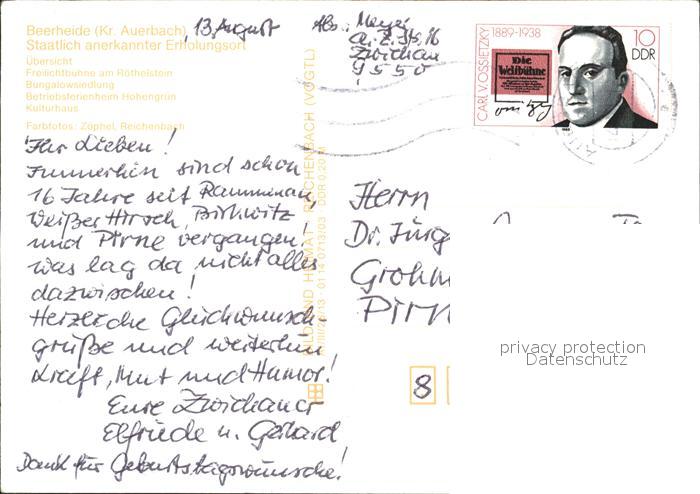 Beerheide (Kr. Auerbach)
Staatlich anerkannter Erholungsort
Übersicht
Freilichtbühne am Röthelstein
Bungalowsiedlung
Betriebsferienheim Hohengrün
Kulturhaus
Farbfotos: Zöphel, Reichenbach
13. August
Ihr Lieben!
Immerhin sind schon
16 Jahre seit
Weißer Hirsch, Birkwitz
und Pirna vergangen!
was lag da nicht alles
dazwischen!
Herzliche Glückwunsch-
grüße und weiterhin
Kraft, Mut und Humor!
Eure Zwickauer
Elfriede u. Gerhard
Dank für Geburtstagswünsche!
BILD UND HEIMAT REICHENBACH (VOGTL)
01 14 0713/03 DDR 0,20 M
Abs.: Meyer
Zwickau
9550
CARL V. OSSIETZKY
1889-1938
Die
Weltbühne
10
DDR
Herrn
Dr. Jürg
Grohm
Pirn
8
privacy protection
Datenschutz